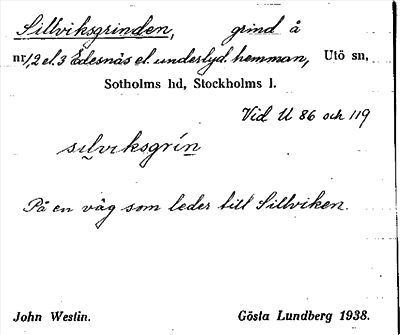 Sillviksgrinden, grind å
nr 1, 2 el. 3 Edesnäs el. underlyd. hemman, Utö sn,
Sotholms hd, Stockholms l.
Vid U 86 och 119
silviksgrín
På en väg som leder till Sillviken.
John Westin. Gösta Lundberg 1938.